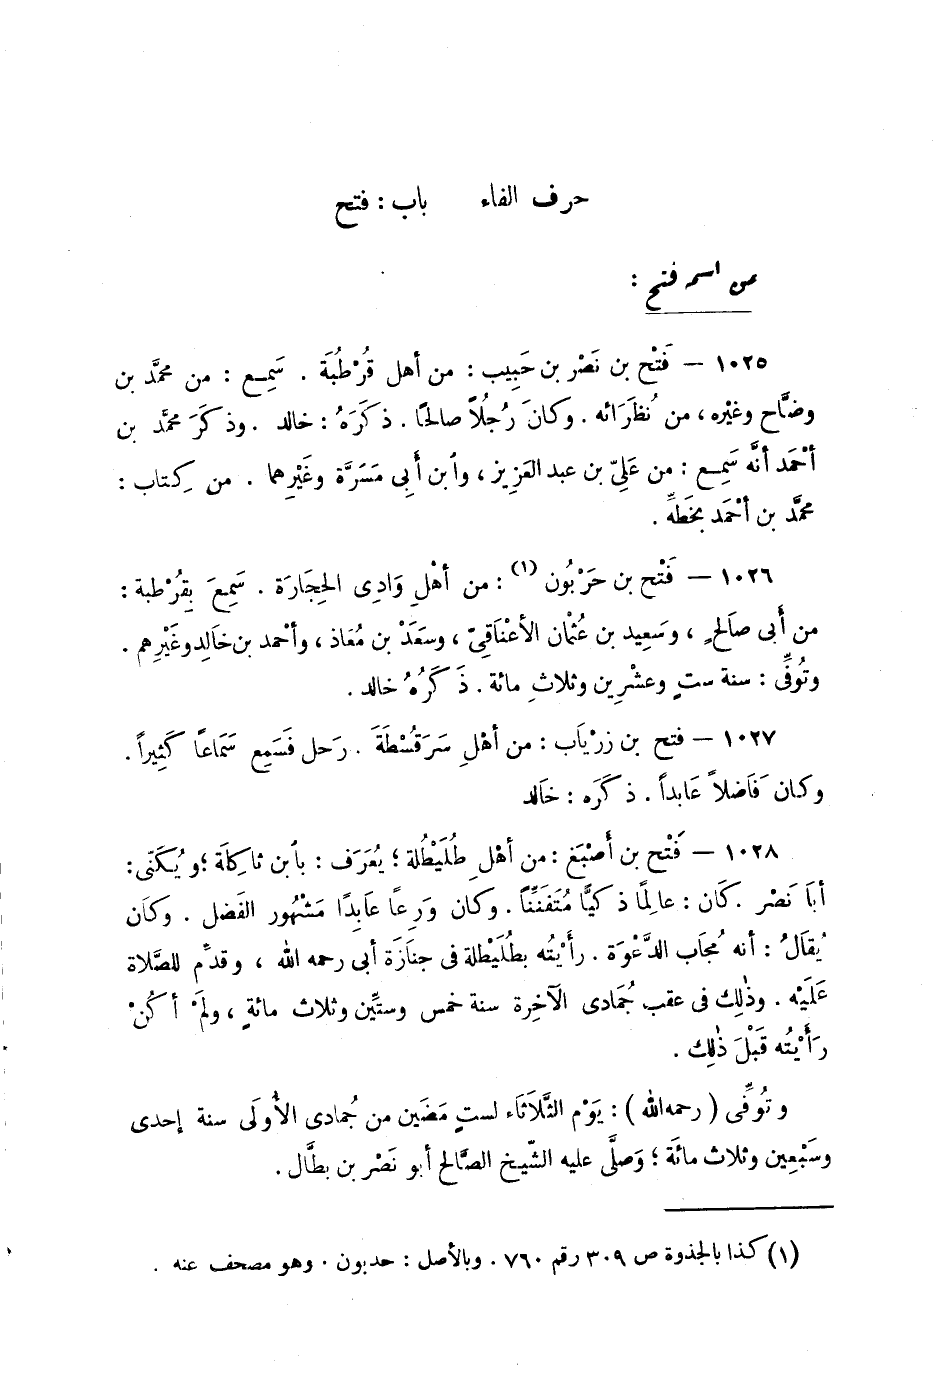 حرف الفاء باب : فتح
من اسمه فتح :
١٠٢٥ — فَتْح بن نَصْر بن حَبِيب : من أهل قُرْطُبَة . سَمِـع : من محمَّد بن
وضَّاح وغيْره ، من نُظَرَائه . وكانَ رَجُلاً صالحًا . ذكَرَهُ : خالد . وذكَرَ محمَّد بن
أحْمَد أنَّه سَمِـع : من عَلِىّ بن عبد العَزِيز ، وٱبن أَبِى مَسَرَّة وغَيْرِهما . من كِـتاب :
محمَّد بن أحْمَد بخَطهِّ .
١٠٢٦ — فَتْح بن حَرْبُون (١) : من أهْلِ وَادِى الحِجَارَة . سَمِعَ بِقُرْطبة :
من أَبى صاَلحٍ ، وسَعِيد بن عُثْمان الأعْنَاقِىّ ، وسَعَدْ بن مُعَاذ ، وأحْمد بن خَالِدوغَيْرِهم .
وتُوفِّى : سنة ستٍ وعشْرِين وثلاثِ مائة . ذَكَرَهُ خالد .
١٠٢٧ — فتح بن زرْياَب : من أهْلِ سَرَقُسْطَةَ . رَحل فَسَمِع سَمَاعاً كَثِيراً .
وكان فَاَضلاً عَابداً . ذكَرَه : خاَلد
١٠٢٨ — فَتْح بن أَصْبَغ : من أهْلِ طُلَيْطُلة ؛ يُعَرَف : بٱبن ثاكِلَة ؛ ويُـكَنّى :
أبَا نَصْر . كَان : عالِمًا ذكيًّا مُتَفَنِّنًا . وكان وَرِعاً عَابِدًا مَشْهُور الفَضل . وكان
يُقاَلُ : أنه مُجاَب الدَّعْوَة . رأَيْتُه بطُلَيْطلة فى جنَازَة أبى رحمه الله ، وقدِّم للصَّلاة
عَلَيْه . وذٰلِك فى عقب جُمَادى الآخِرة سنة خمس وستِّين وثلاث مائةٍ ، ولمَْ أكُنْ
رَأَيْتُه قَبْلَ ذٰلِك .
وتُوفِّى ( رحمه الله ) : يَوْم الثَّلاَثَاء لستٍ مَضَين من جُمادى الأُولَى سنة إحدى
وسَبْعِين وثلاث مائَة ؛ وَصلَّى عليه الشّيخ الصَّالح أبو نَصْر بن بطَّال .
(١) كذا بالجذوة ص ٣٠٩ رقم ٧٦٠ . وبالأصل : حدبون . وهو مصحف عنه .